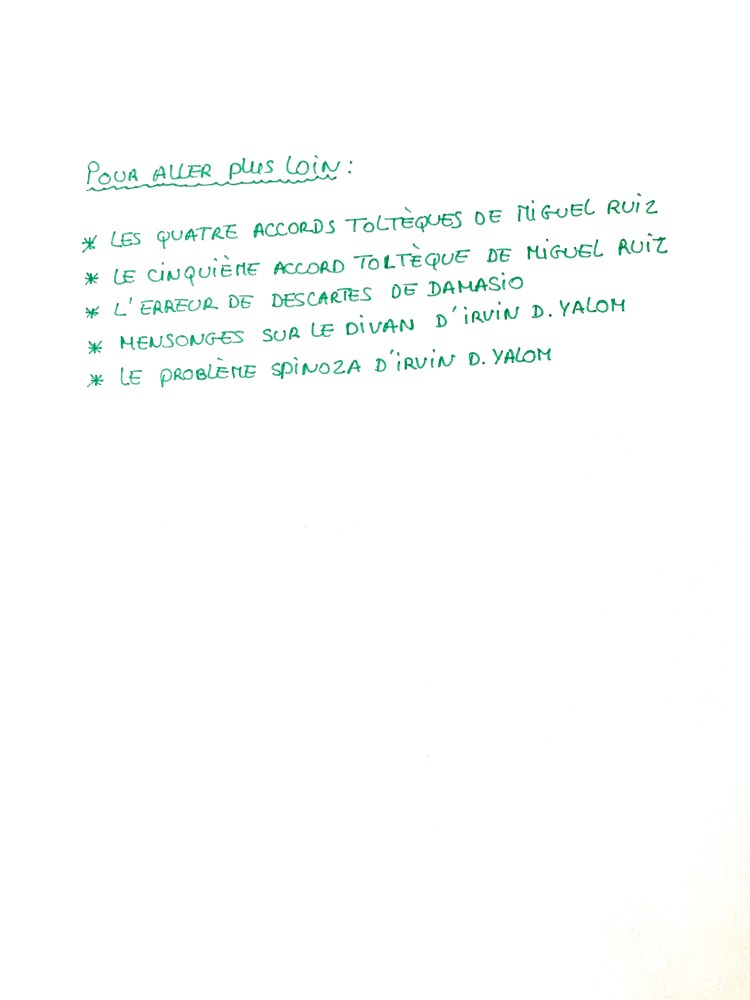 Pour aller plus loin :
* Les quatre accords toltèques de Miguel Ruiz
* Le cinquième accord toltèque de Miguel Ruiz
* L'erreur de Descartes de Damasio
* Mensonges sur le divan d'Irvin D. Yalom
* Le problème Spinoza d'Irvin D. Yalom